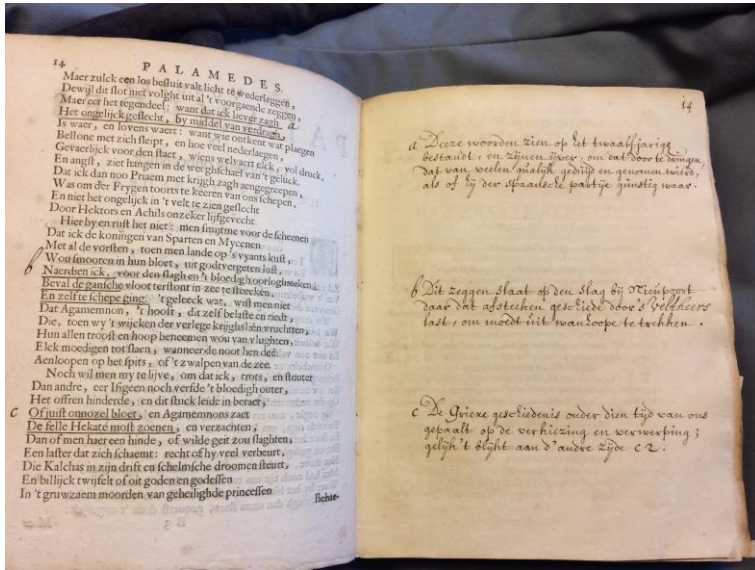 14
PALAMEDES.
Maer zulck een los besluit valt licht te wederleggen,
Dewijl dit slot niet volght uit al 't voorgaende zeggen,
Maer eer het tegendeel: want dat ick liever zagh a
Het ongelijck geslecht, by middel van verdragh,
Is waer, en lovens waert: want wie ontkent wat plaegen
Bellone met zich sleipt, en hoe veel nederlaegen,
Gevaerlijck voor den staet, wiens welvaert elck, vol druck,
En angst, ziet hangen in de weeghschael van 't geluck.
Dat ick dan noo Priaem met krijgh zagh aengegreepen,
Was om der Frygen toorts te keeren van ons schepen,
En niet het ongelijck in 't velt te zien geslecht
Door Hektors en Achils onzeker lijfgevecht.
Hier by en rust het niet: men smijt me voor de scheenen
Dat ick de koningen van Sparten en Mycenen
Met al de vorsten, toen men lande op 's vyants kust,
Wou smooren in hun bloet, uit godtvergeten lust,
b Naerdien ick, voor den slagh en 't bloedigh oorlogh steeken,
Beval de gansche vloot terstont in zee te steecken,
En zelf te schepe ging. 't geleeck wat, wist men niet
Dat Agamemnon, 't hooft, dit zelf belaste en riedt,
Die, toen wy 't wijcken der verlege krijghsliên vruchtten,
Hun allen troost en hoop beneemen wou van vlughten,
Elck moedigen tot slaen, wanneer de noot hen deê
Aenloopen op het spits, of 't zwalpen van de zee.
Noch wil men my te lijve, om dat ick, trots, en stouter
Dan andre, eer Ifigeen noch verfde 't bloedigh outer,
Het offren hinderde, en dit stuck leide in beraet,
c Of juist onnozel bloet, en Agamemnons zaet
De felle Hekaté most zoenen, en verzachten,
Dan of men haer een hinde, of wilde geit zou slaghten,
Een laster dat zich schaemt: recht of hy veel verbeurt,
Die Kalchas in zijn drift en schelmsche droomen steurt,
En billijck twijfelt of oit goden en godessen
In 't gruwzaem moorden van geheilighde princessen
Behae-
14
a Deeze woorden zien op het twaalfjarige
bestandt, en zijnen yver, om dat door te dringen,
dat van veelen qualijk geduid en genomen wierd,
als of hij der spaansche partije gunstig waar.
b Dit zeggen slaat op den slag bij Nieupoort
daar dat afsteeken geschiede door 's Veltheers
last, om moedt uit wanhoope te trekken.
c De Griexe geschiedenis onder dien tyd van ons
gepaalt op de verkiezing en verwerping;
gelijk 't blijkt aan d'andre zijde c 2.